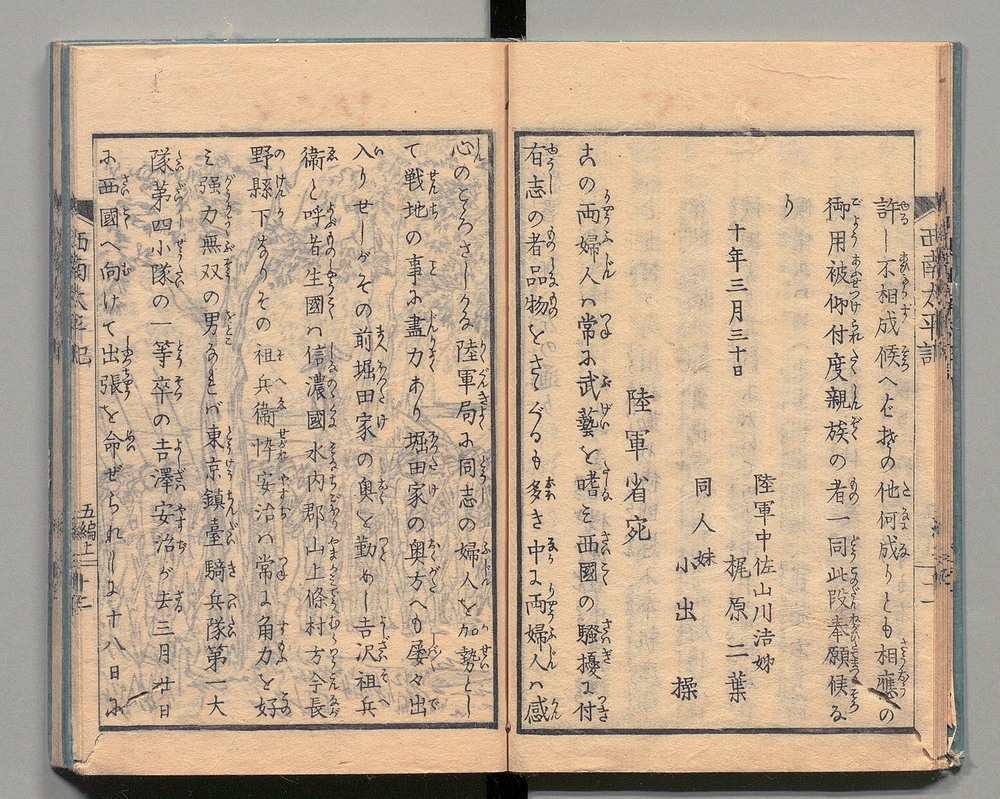 許し不相成候へバ其の他何成りとも相應の
御用被仰付度親族の者一同此段奉願候な
り
十年三月三十日
陸軍中佐山川浩姉
梶原二葉
同人妹
小出操
陸軍省宛
右の両婦人ハ常に武藝を嗜ミ西國の騒擾に付
有志の者品物をさゝぐるも多き中に両婦人ハ感
心のこゝろざしなる陸軍局に同志の婦人を加勢とし
て戦地の事に盡力あり堀田家の奥方へも屡々出
入りせしがその前堀田家の奥を勤めし吉沢祖兵
衞と呼者生國ハ信濃國水内郡山上條村方今長
野縣下なりその祖兵衞忰安治ハ常に角力を好
ミ强力無双の男なれバ東京鎮臺騎兵隊第一大
隊第四小隊の一等卒の吉澤安治が去三月廿日
に西國へ向けて出張を命ぜられしに十八日に
西南太平記
五編上
十二